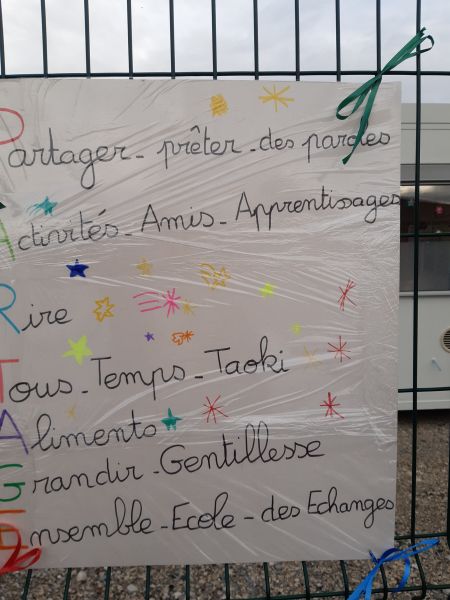 Partager - prêter - des paroles
Activités - Amis - Apprentisages
Rire
Tous - Temps - Taoki
Aliments
Grandir - Gentillesse
Ensemble - Ecole - des Echanges